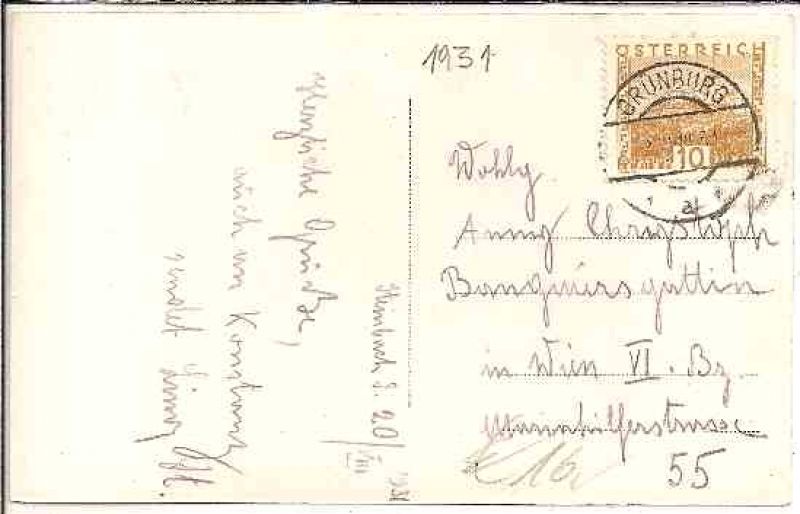 1931
ÖSTERREICH
GRÜNBURG
10
Wohlg.
Anny Christoph
Banquiersgattin
in Wien VI. Bz.
Mariahilferstrasse
55
Herzliche Grüße,
auch an
sendet
20/VIII 1931